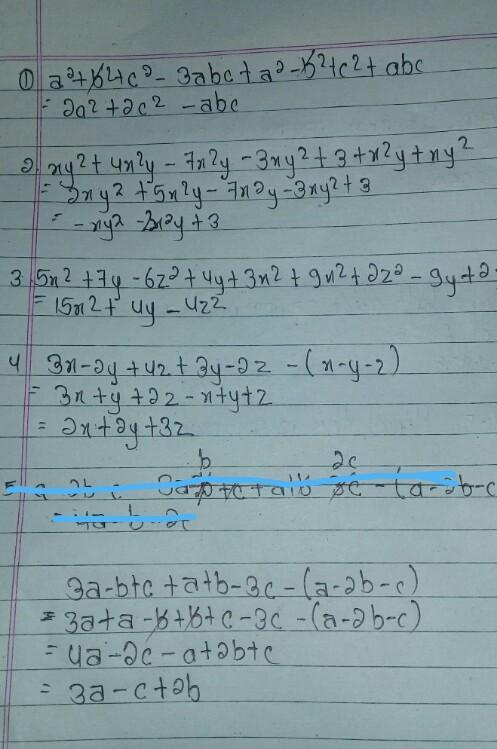 ① a²+b²+c² - 3abc + a² - b² + c² + abc
= 2a² + 2c² - abc
2. xy² + 4x²y - 7x²y - 3xy² + 3 + x²y + xy²
= 2xy² + 5x²y - 7x²y - 3xy² + 3
= -xy² - 2x²y + 3
3. 5x² + 7y - 6z² + 4y + 3x² + 9x² + 2z² - 9y + 2
= 15x² + 4y - 4z²
4 3x-2y+4z+3y-2z - (x-y-z)
= 3x+y+2z-x+y+z
= 2x+2y+3z
b 2c
- (a-2b-c
3a-b+c+a+b-3c-(a-2b-c)
= 3a+a-b+b+c-3c-(a-2b-c)
= 4a-2c-a+2b+c
= 3a-c+2b